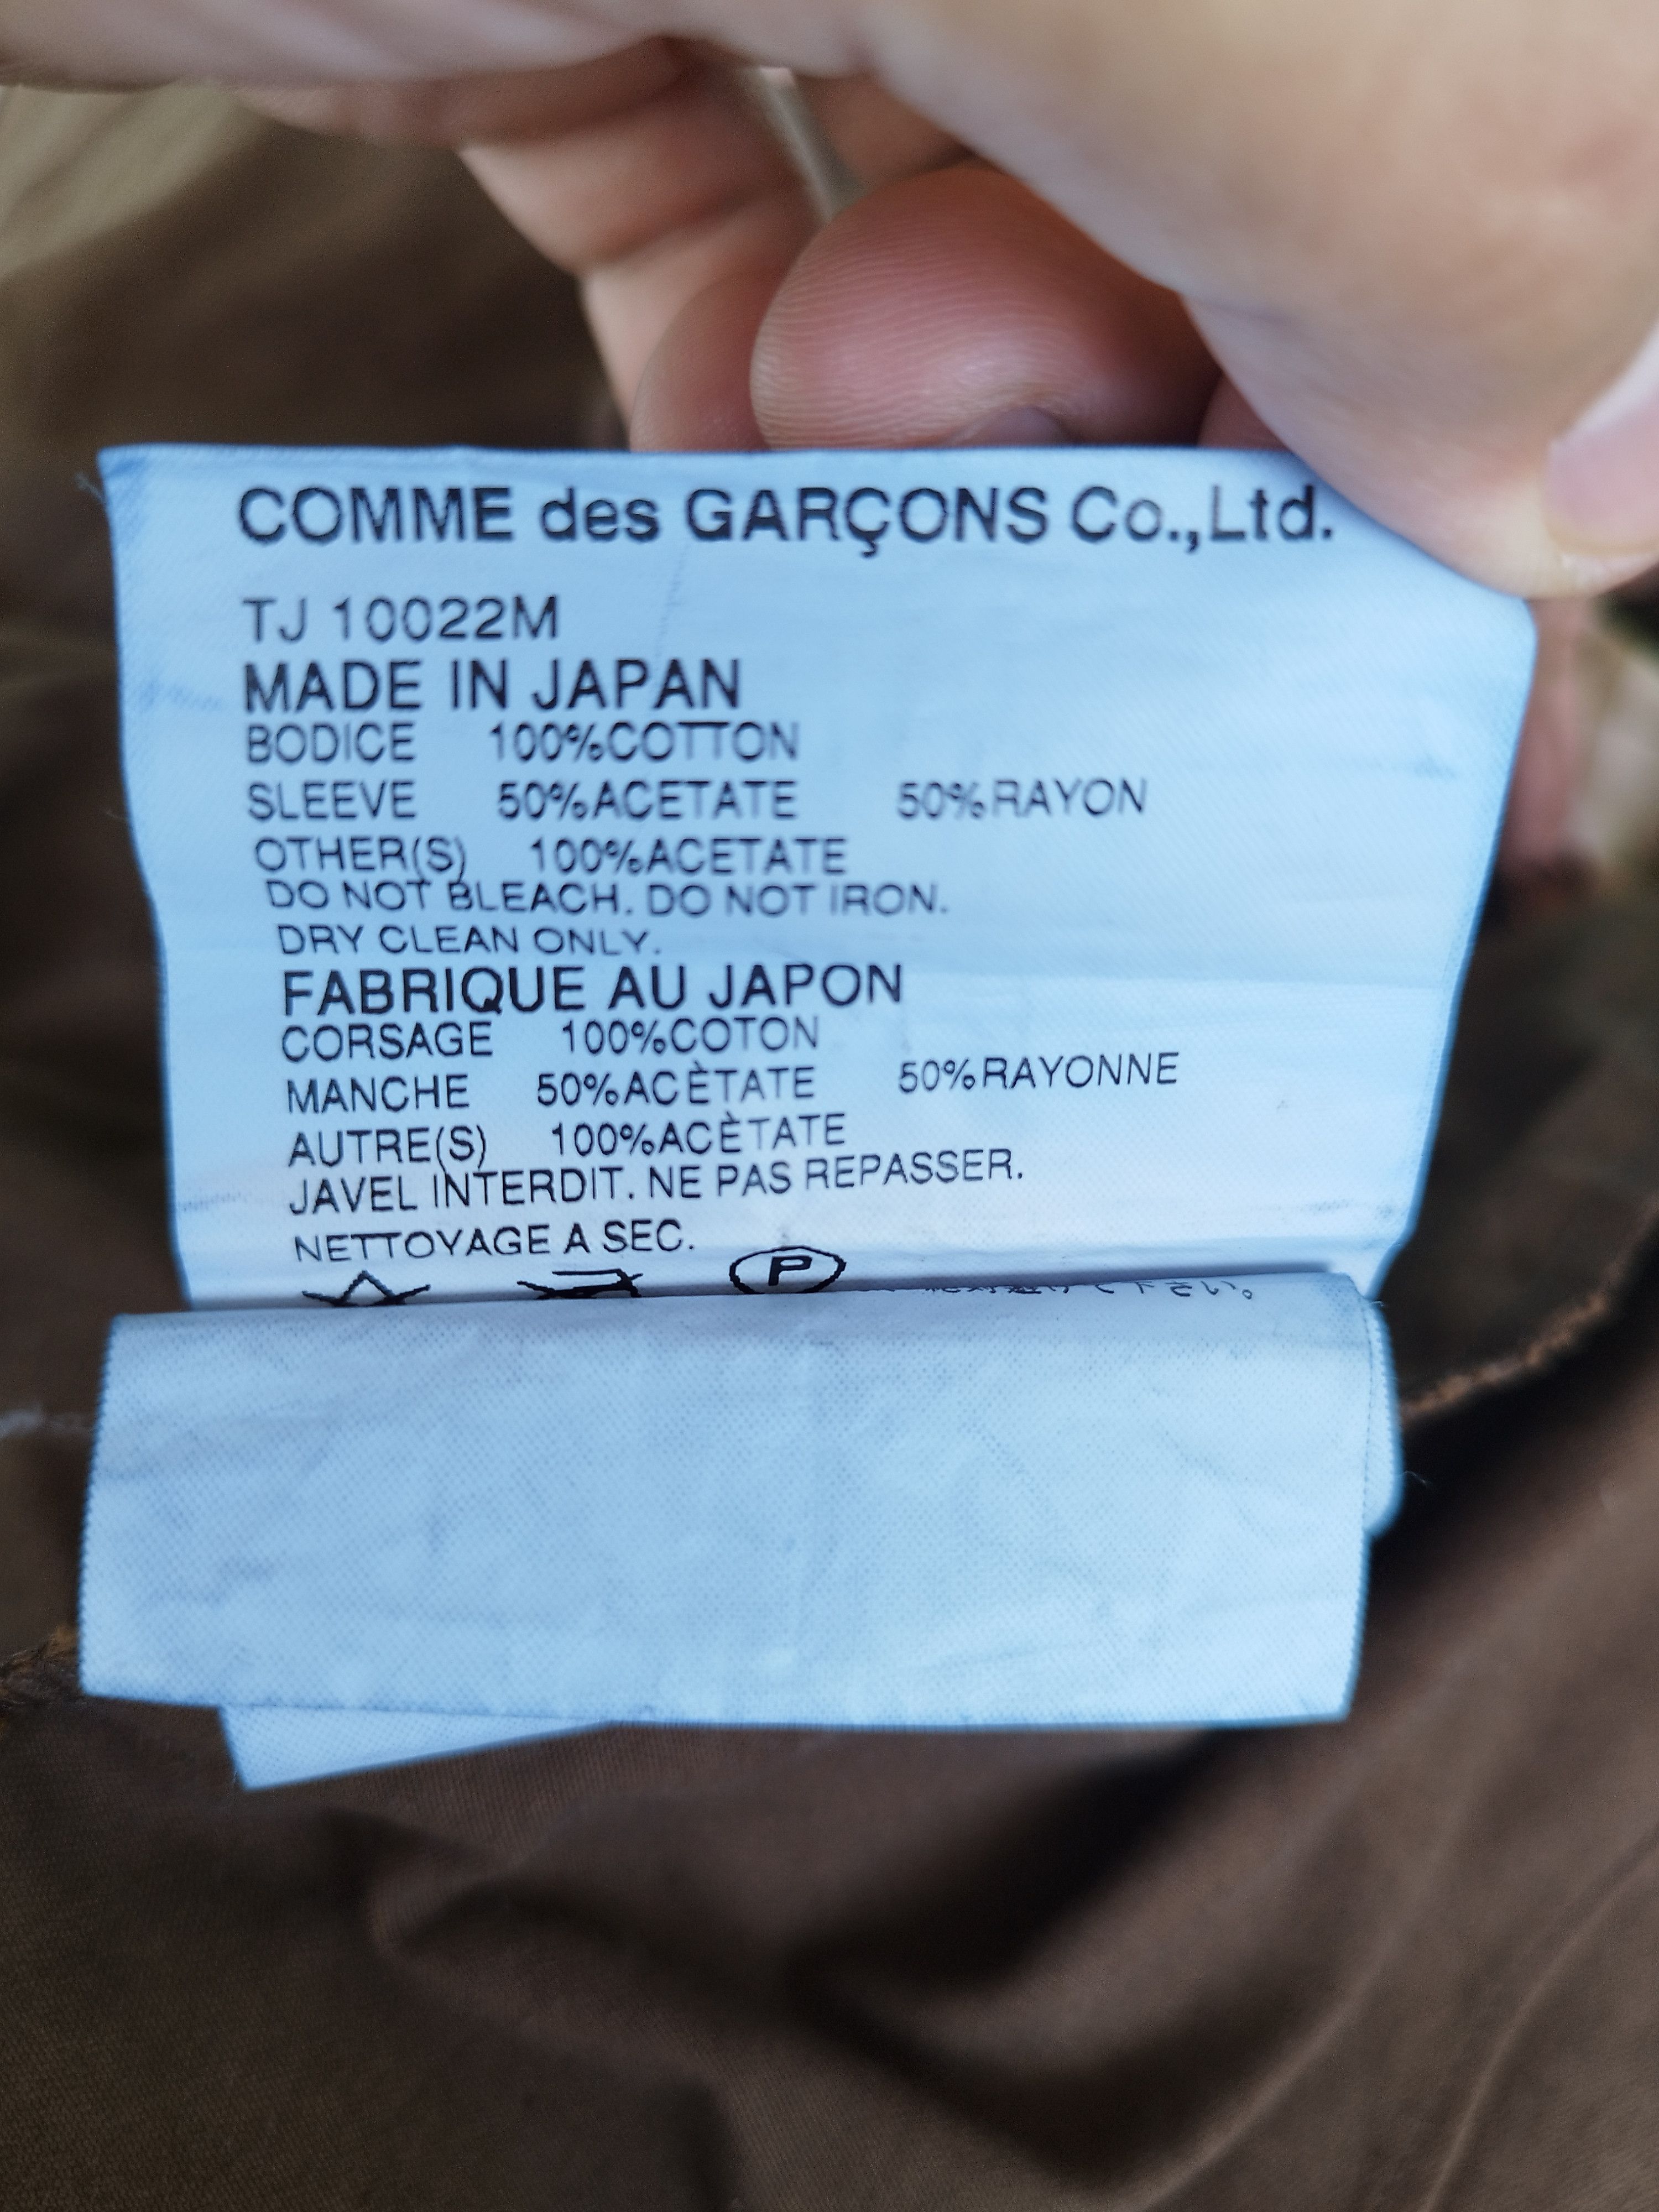 COMME des GARÇONS Co.,Ltd.
TJ 10022M
MADE IN JAPAN
BODICE 100%COTTON
SLEEVE 50%ACETATE 50%RAYON
OTHER(S) 100%ACETATE
DO NOT BLEACH. DO NOT IRON.
DRY CLEAN ONLY.
FABRIQUE AU JAPON
CORSAGE 100%COTON
MANCHE 50%ACÈTATE 50%RAYONNE
AUTRE(S) 100%ACÈTATE
JAVEL INTERDIT. NE PAS REPASSER.
NETTOYAGE A SEC.
P 下さい。